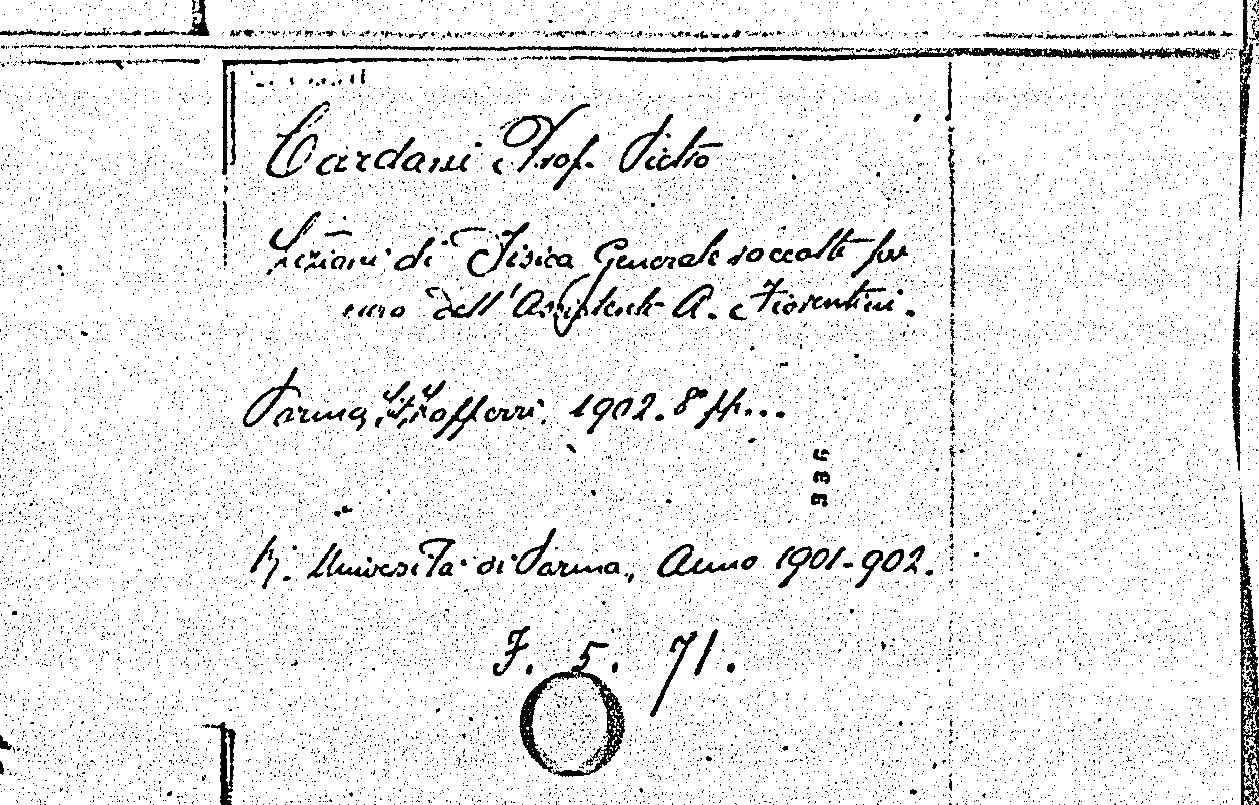 Cardani Prof. Pietro
Lezioni di Fisica Generale raccolte per
cura dell'Assistente A. Fiorentini.
Parma, Zafferri. 1902. 8° pp...
R. Università di Parma, Anno 1901-902.
F. 5. 71.